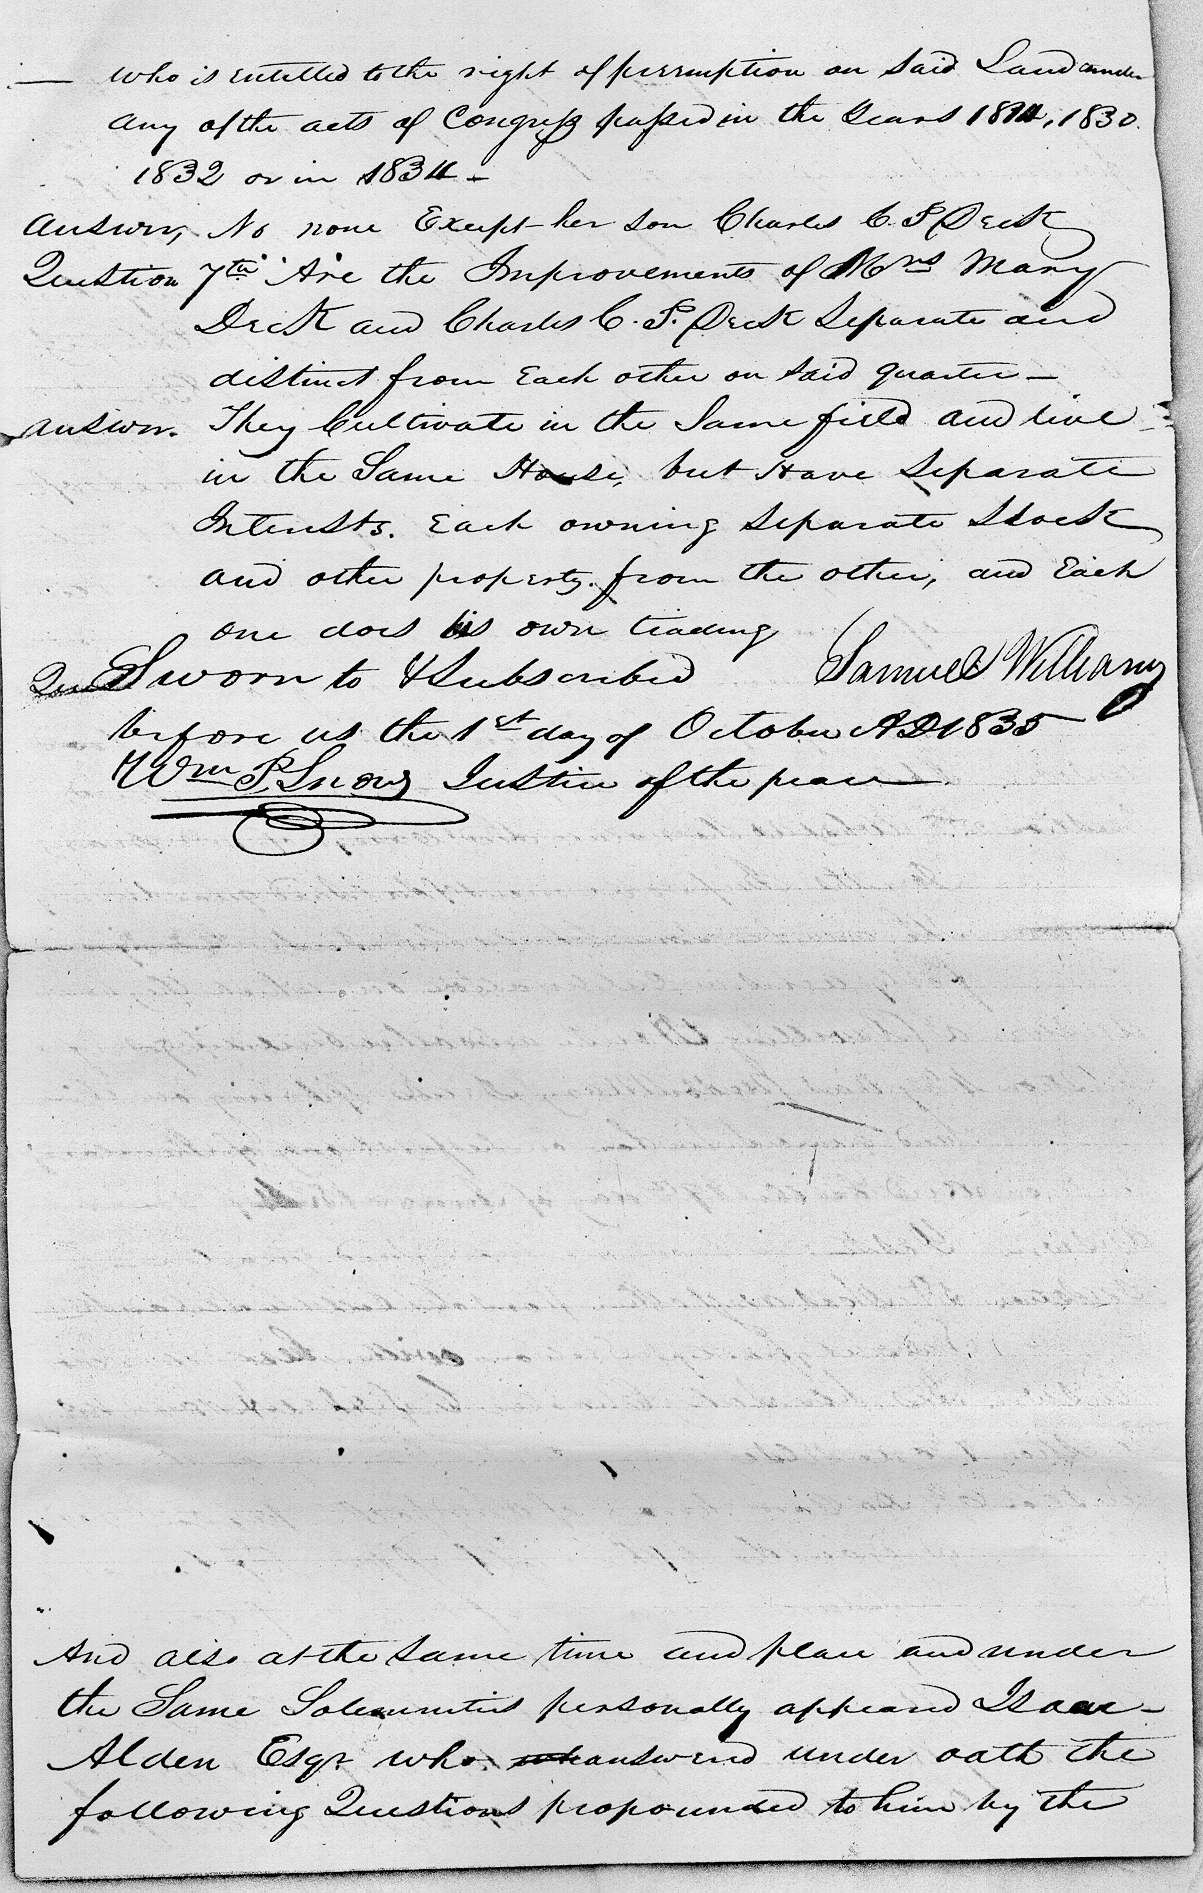 — who is entitled to the right of preemption on said Land under
any of the acts of Congress passed in the years 1814, 1830
1832 or in 1834 —
Answer, No none Except her son Charles C. P. Peck
Question 7th Are the Improvements of Mrs Mary
Peck and Charles C. P. Peck Separate and
distinct from Each other on said quarter —
Answer. They Cultivate in the Same field and live
in the Same House, but Have Separate
Interests. Each owning Separate Stock
and other property from the other, and Each
one does his own trading
Sworn to & Subscribed Samuel Williams
before us the 1st day of October AD 1835
Wm P. Snow Justice of the peace
And also at the same time and place and under
the Same Solemnities personally appeared Isaac
Alden Esqr who answered under oath the
following Questions propounded to him by the